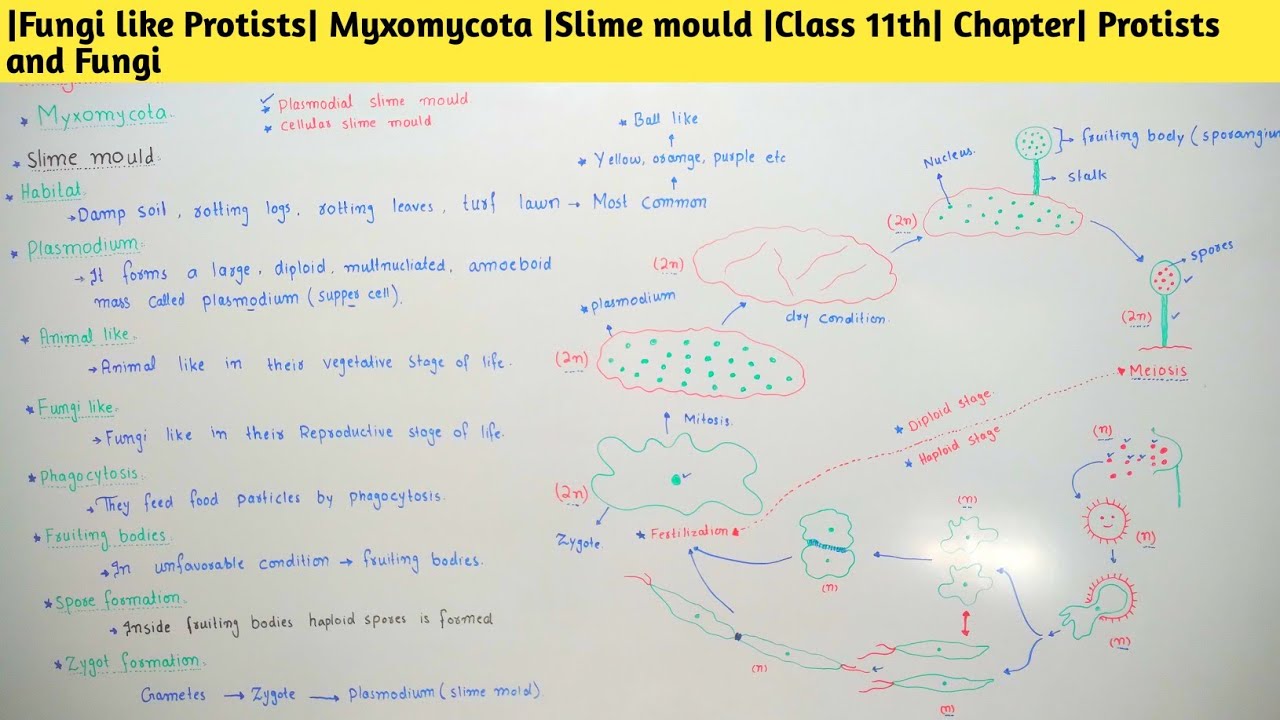 |Fungi like Protists| Myxomycota |Slime mould |Class 11th| Chapter| Protists
and Fungi
Myxomycota
Plasmodial slime mould
cellular slime mould
Slime mould
Habitat
Damp soil, rotting logs, rotting leaves, turf lawn → Most common
Yellow, orange, purple etc
Ball like
Plasmodium
It forms a large, diploid, multnucliated, amoeboid
mass called plasmodium (supper cell).
Animal like
Animal like in their vegetative stage of life.
Fungi like
Fungi like in their Reproductive stage of life.
Phagocytosis
They feed food particles by phagocytosis.
Fruiting bodies
In unfavorable condition → fruiting bodies.
Spore formation
Inside fruiting bodies haploid spores is formed
Zygot formation
Gametes → Zygote → plasmodium (slime mold)
fruiting body (sporangium
stalk
Nucleus
(2n)
(2n)
dry condition
plasmodium
(2n)
spores
(2n)
Meiosis
Mitosis
(2n)
Zygote
Fertilization
Diploid stage
Haploid stage
(n)
(n)
(n)
(n)
(n)
(n)
(n)